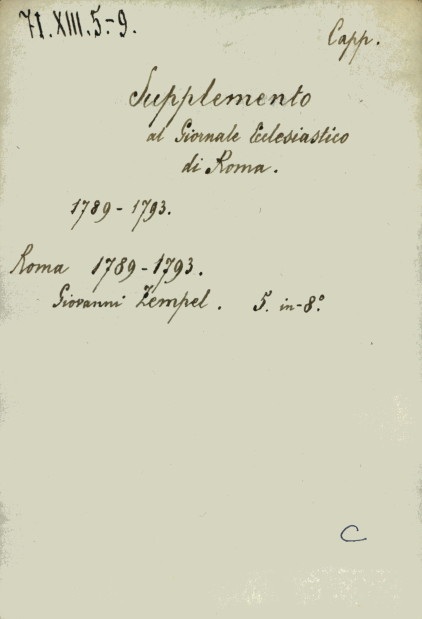 71.XIII.5.-9.
Capp.
Supplemento
al Giornale Eclesiastico
di Roma.
1789-1793.
Roma 1789-1793.
Giovanni Zempel. 5. in-8°.
C